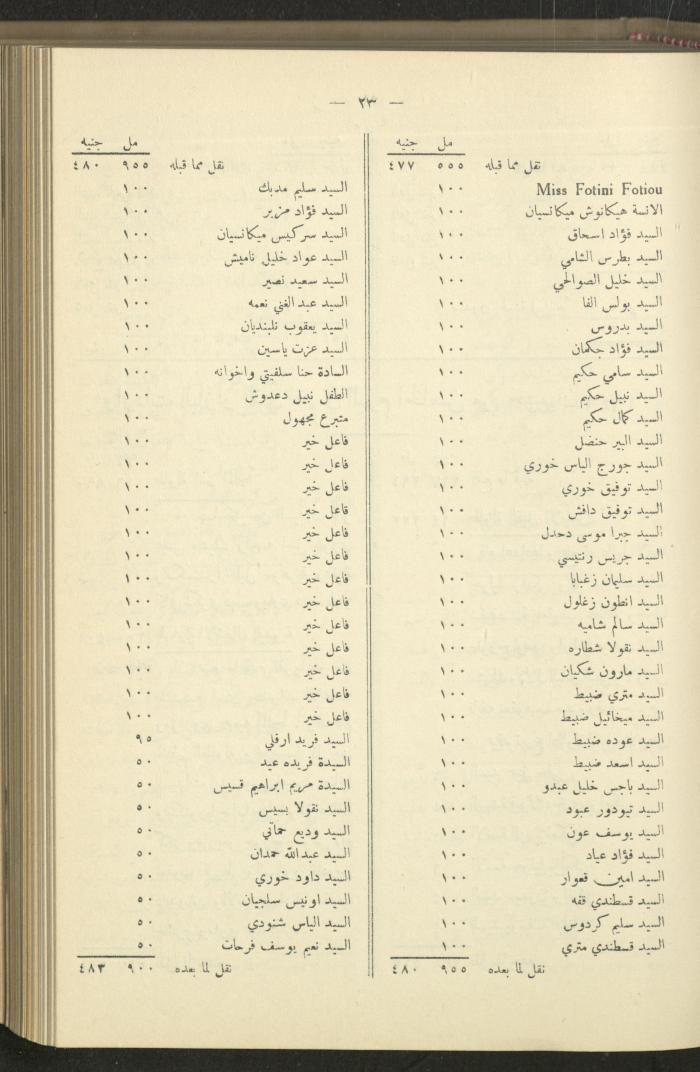 — ٢٣ —
مل جنيه
نقل مما قبله ٥٥٥ ٤٧٧
Miss Fotini Fotiou ١٠٠
الانسة هيكانوش ميكانسيان ١٠٠
السيد فؤاد اسحاق ١٠٠
السيد بطرس الشامي ١٠٠
السيد خليل الصوالحي ١٠٠
السيد بولس الفا ١٠٠
السيد بدروس ١٠٠
السيد فؤاد جكمان ١٠٠
السيد سامي حكيم ١٠٠
السيد نبيل حكيم ١٠٠
السيد كمال حكيم ١٠٠
السيد البير حنضل ١٠٠
السيد جورج الياس خوري ١٠٠
السيد توفيق خوري ١٠٠
السيد توفيق دافش ١٠٠
السيد جبرا موسى دحدل ١٠٠
السيد جريس رنتيسي ١٠٠
السيد سليمان زغبابا ١٠٠
السيد انطون زغلول ١٠٠
السيد سالم شاميه ١٠٠
السيد نقولا شطاره ١٠٠
السيد مارون شكيان ١٠٠
السيد متري ضبيط ١٠٠
السيد ميخائيل ضبيط ١٠٠
السيد عوده ضبيط ١٠٠
السيد اسعد ضبيط ١٠٠
السيد باجس خليل عبدو ١٠٠
السيد تيودور عبود ١٠٠
السيد يوسف عون ١٠٠
السيد فؤاد عياد ١٠٠
السيد امين قعوار ١٠٠
السيد قسطندي قفه ١٠٠
السيد سليم كردوس ١٠٠
السيد قسطندي متري ١٠٠
نقل لما بعده ٩٥٥ ٤٨٠
مل جنيه
نقل مما قبله ٩٥٥ ٤٨٠
السيد سليم مدبك ١٠٠
السيد فؤاد مزبر ١٠٠
السيد سركيس ميكانسيان ١٠٠
السيد عواد خليل ناميش ١٠٠
السيد سعيد نصير ١٠٠
السيد عبد الغني نعمه ١٠٠
السيد يعقوب نلبنديان ١٠٠
السيد عزت ياسين ١٠٠
السادة حنا سلفيتي واخوانه ١٠٠
الطفل نبيل دعدوش ١٠٠
متبرع مجهول ١٠٠
فاعل خير ١٠٠
فاعل خير ١٠٠
فاعل خير ١٠٠
فاعل خير ١٠٠
فاعل خير ١٠٠
فاعل خير ١٠٠
فاعل خير ١٠٠
فاعل خير ١٠٠
فاعل خير ١٠٠
فاعل خير ١٠٠
فاعل خير ١٠٠
فاعل خير ١٠٠
فاعل خير ١٠٠
السيد فريد ارفلي ٩٥
السيدة فريده عيد ٥٠
السيدة مريم ابراهيم قسيس ٥٠
السيد نقولا بسيس ٥٠
السيد وديع حماتي ٥٠
السيد عبدالله حمدان ٥٠
السيد داود خوري ٥٠
السيد اونيس سلجيان ٥٠
السيد الياس شنودي ٥٠
السيد نعيم يوسف فرحات ٥٠
نقل لما بعده ٩٠٠ ٤٨٣